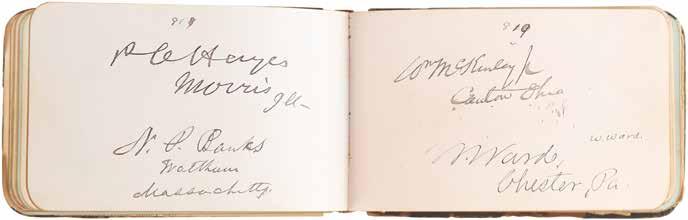 P C Hayes
Morris
Ill-
N. P. Banks
Waltham
Massachtts.
819
Wm McKinley Jr
Canton Ohio
W. Ward.
W Ward,
Chester, Pa.